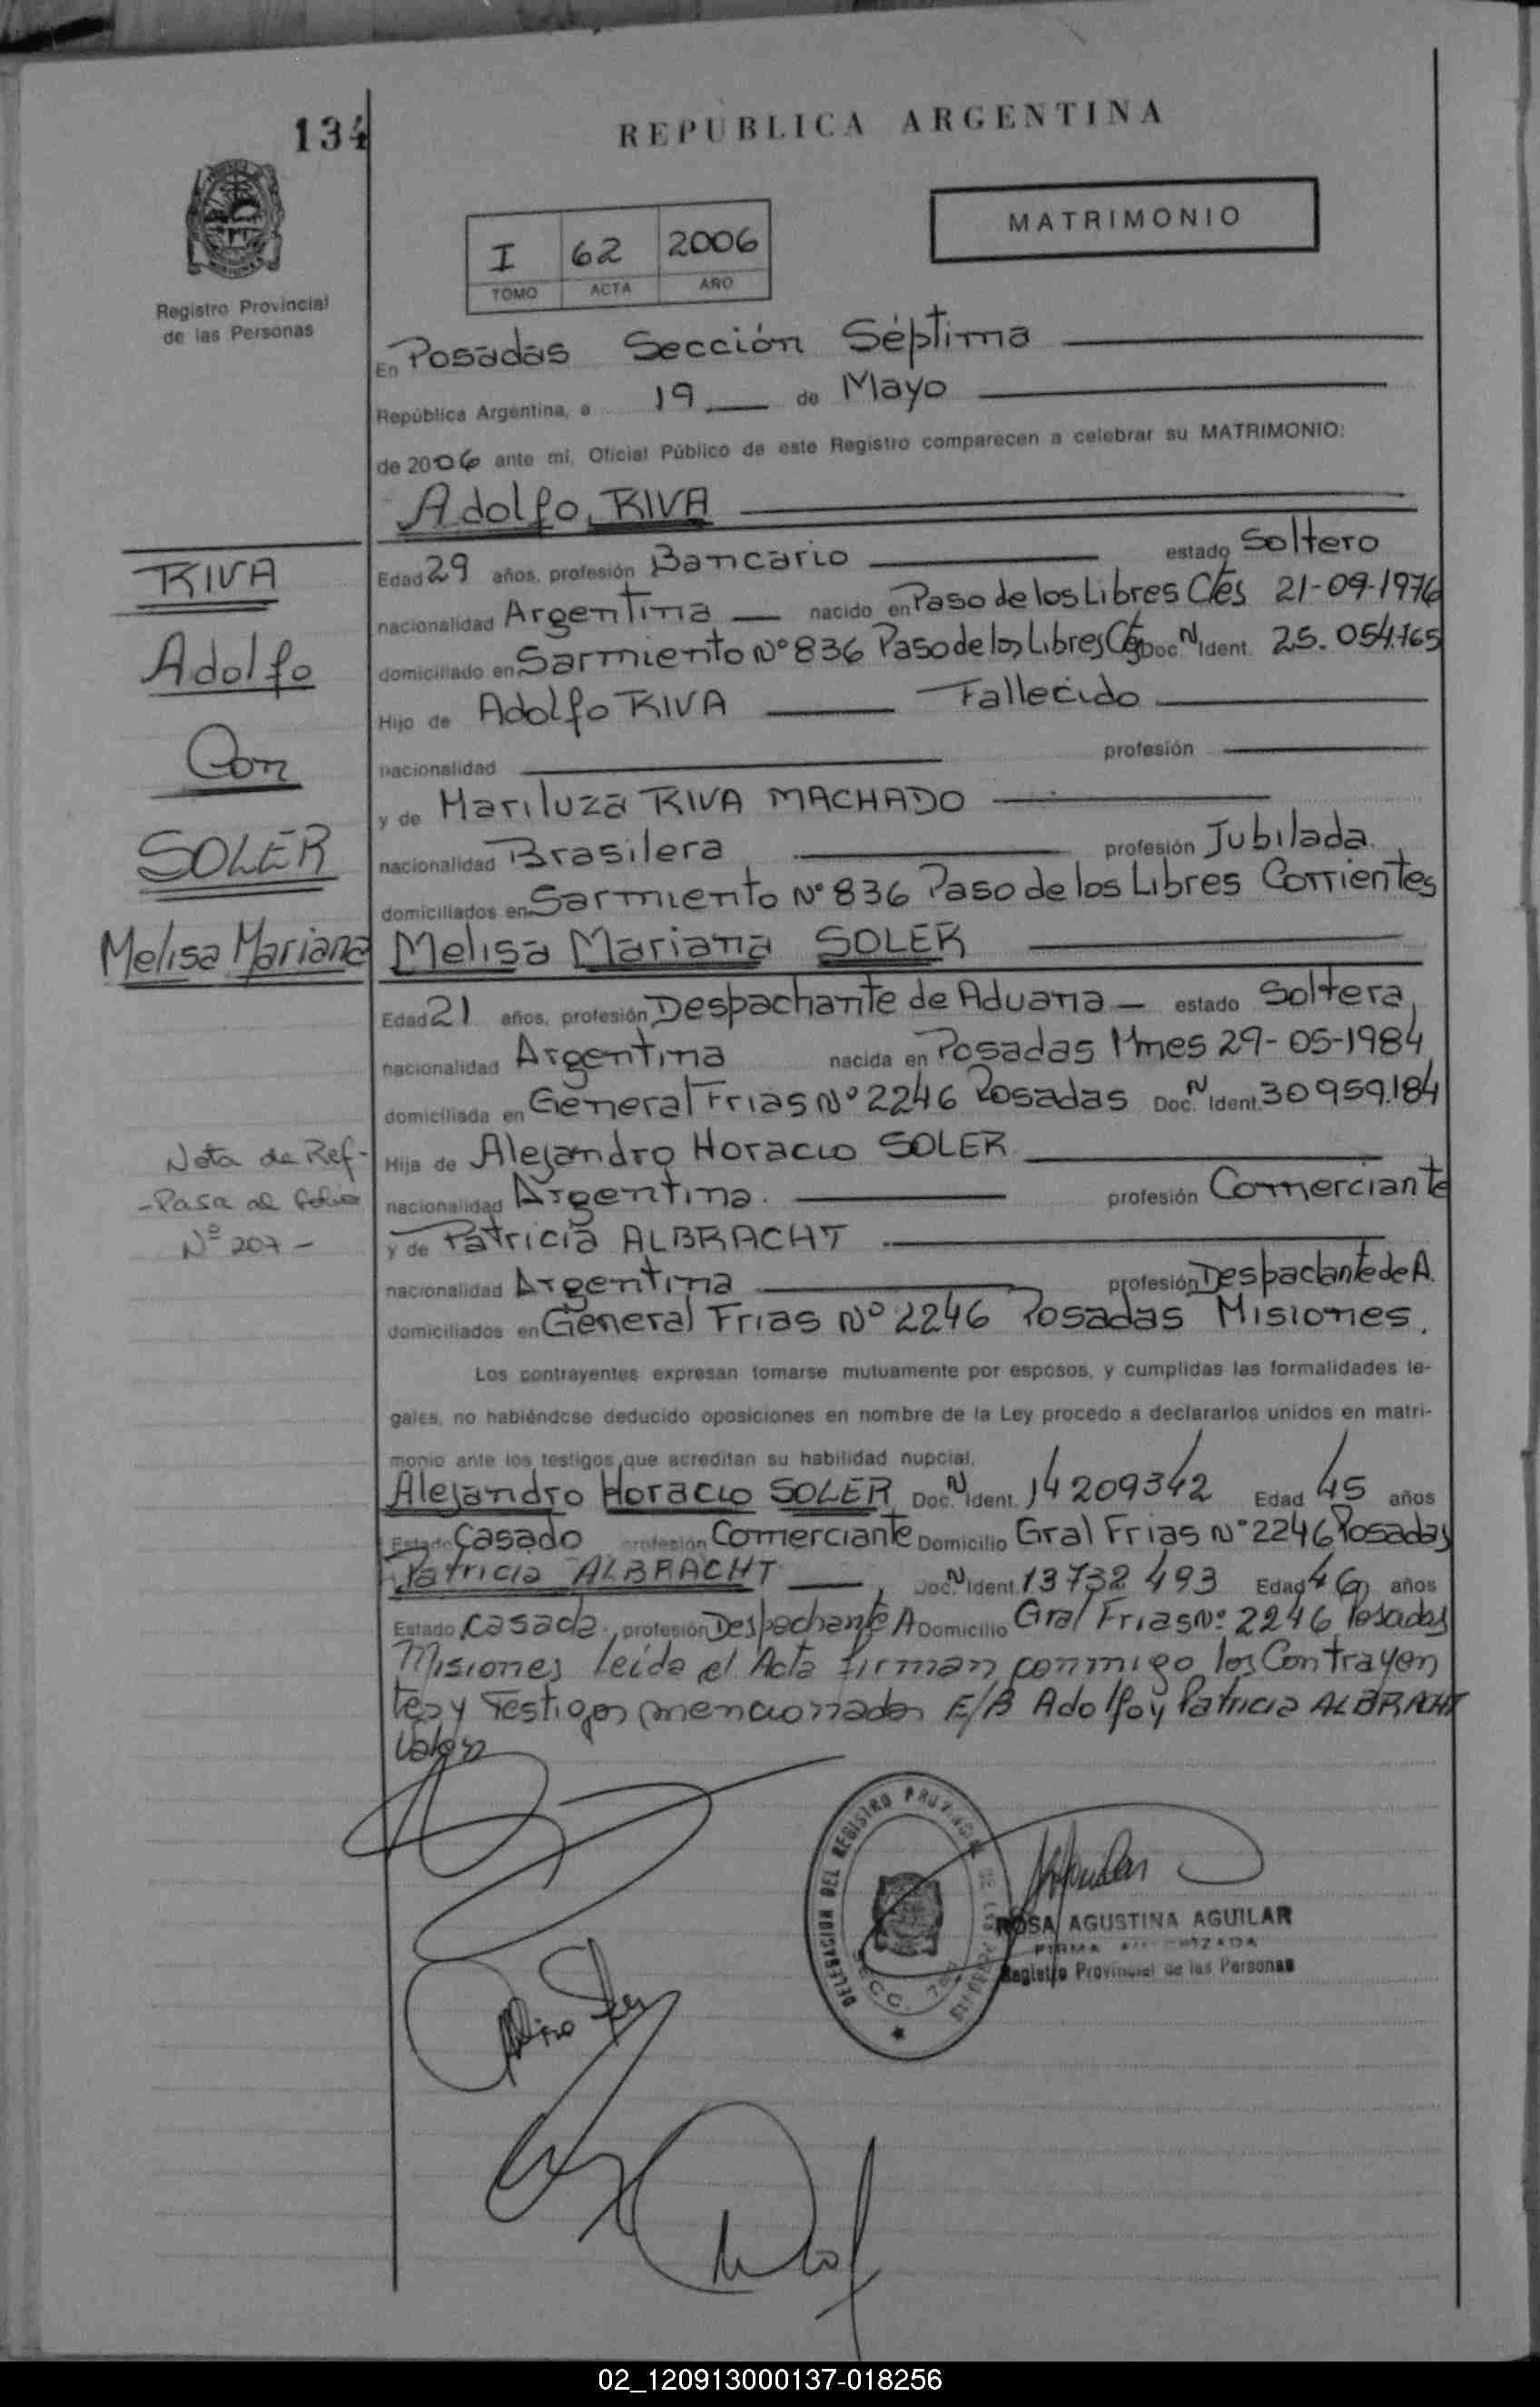 134
REPUBLICA ARGENTINA
MATRIMONIO
I 62 2006
TOMO ACTA AÑO
Registro Provincial
de las Personas
En Posadas Sección Séptima
República Argentina, a 19 de Mayo
de 2006 ante mí, Oficial Público de este Registro comparecen a celebrar su MATRIMONIO:
Adolfo, RIVA
RIVA
Adolfo
Con
SOLER
Melisa Mariana
Edad 29 años, profesión Bancario estado Soltero
nacionalidad Argentina nacido en Paso de los Libres Ctes 21-09-1976
domiciliado en Sarmiento Nº 836 Paso de los Libres Ctes Doc. N Ident. 25.054.765
Hijo de Adolfo RIVA Fallecido
nacionalidad profesión
y de Mariluza RIVA MACHADO
nacionalidad Brasilera profesión Jubilada.
domiciliados en Sarmiento Nº 836 Paso de los Libres Corrientes
Melisa Mariana SOLER
Edad 21 años, profesión Despachante de Aduana estado Soltera,
nacionalidad Argentina nacida en Posadas Mnes 29-05-1984
domiciliada en General Frias Nº 2246 Posadas Doc. N Ident. 30959.184
Hija de Alejandro Horacio SOLER
nacionalidad Argentina. profesión Comerciante
y de Patricia ALBRACHT
nacionalidad Argentina profesión Despaclante de A.
domiciliados en General Frias Nº 2246 Posadas Misiones.
Nota de Ref-
-Pasa al folio
Nº 207-
Los contrayentes expresan tomarse mutuamente por esposos, y cumplidas las formalidades le-
gales, no habiéndose deducido oposiciones en nombre de la Ley procedo a declararlos unidos en matri-
monio ante los testigos que acreditan su habilidad nupcial.
Alejandro Horacio SOLER Doc. N Ident. 14209342 Edad 45 años
Estado Casado profesión Comerciante Domicilio Gral Frias Nº 2246 Posadas
Patricia ALBRACHT, Doc. N Ident. 13732493 Edad 46 años
Estado Casada., profesión Despachante A Domicilio Gral Frias Nº 2246 Posadas
Misiones leída el Acta firman conmigo los Contrayen
tes y Testigos mencionados E/B Adolfo y Patricia ALBRACHT
Valen
DELEGACION DEL REGISTRO PROVINCIAL DE LAS PERSONAS
SECC. 7ma
ROSA AGUSTINA AGUILAR
FIRMA AUTORIZADA
Registro Provincial de las Personas
02_120913000137-018256